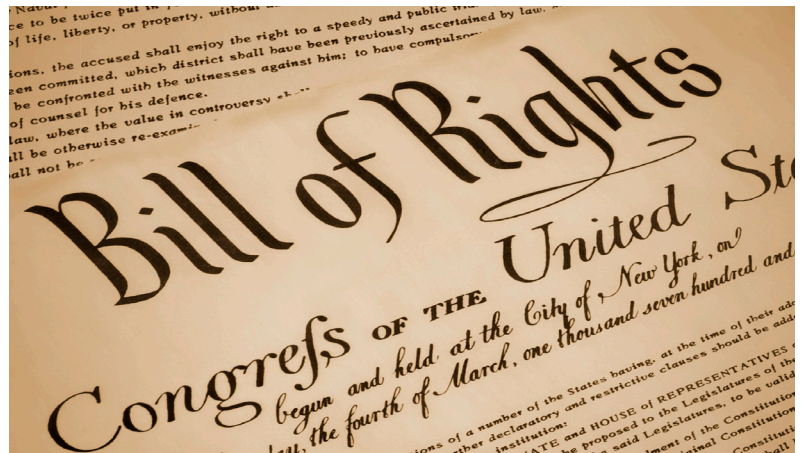 Naval
ce to be twice put in
of life, liberty, or property, without
ions, the accused shall enjoy the right to a speedy and public
een committed, which district shall have been previously ascertained by law,
be confronted with the witnesses against him; to have compulsory
of counsel for his defence.
law, where the value in controversy shall
all be otherwise re-exami
all not be
Bill of Rights
Congreſs OF THE United Sta
begun and held at the City of New York, on
day, the fourth of March, one thousand seven hundred and
ions of a number of the States having, at the time of their ado
ther declaratory and restrictive clauses should be adde
institution:
ATE and HOUSE of REPRESENTATIVES
be proposed to the Legislatures of the
said Legislatures, to be valid
dment of the Constitution
riginal Constitution